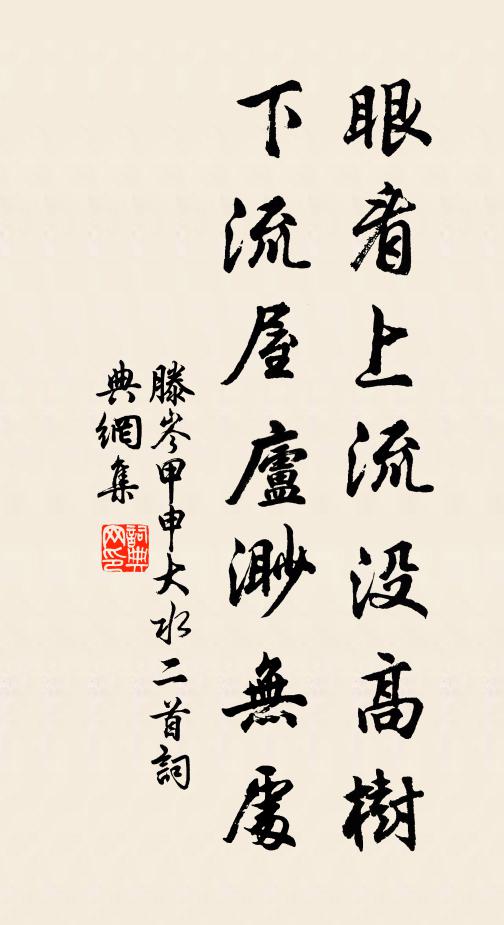 眼看上流没高樹
下流屋廬渺無處
滕岑甲申大水二首詞
典網集
詞典網印